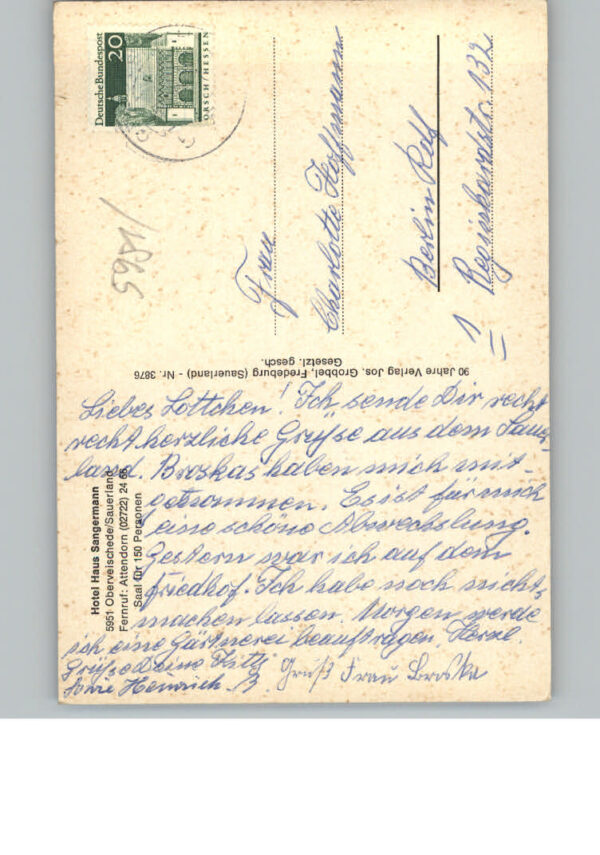 Deutsche Bundespost
20
LORSCH/HESSEN
5981/
Frau
Charlotte Hoffmann
1 Berlin
Reginhardstr. 132
90 Jahre Verlag Jos. Grobbel, Fredeburg (Sauerland) - Nr. 3876
Gesetzl. gesch.
Hotel Haus Sangermann
5951 Oberveischede/Sauerland
Fernruf: Attendorn (02722) 24 66
Saal für 150 Personen
Liebes Lottchen! Ich sende Dir recht
recht herzliche Grüße aus dem Sauer-
land. Broskas haben mich mit-
genommen. Es ist für mich
eine schöne Abwechslung.
Gestern war ich auf dem
Friedhof. Ich habe noch nichts
machen lassen. Morgen werde
ich eine Gärtnerei beauftragen. Herzl.
Grüße Deine Kitty
Heinrich B. Gruß Frau Broska